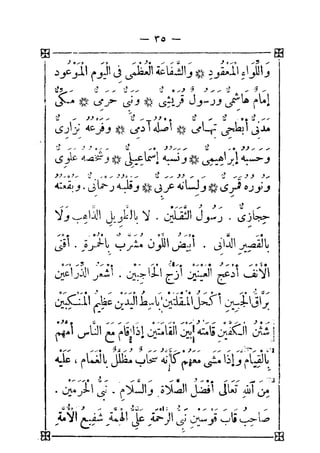 — ٣٥ —
وَاللِّوَاءِ الْمَعْقُودِ * وَالشَّفَاعَةِ الْعُظْمٰى فِى الْيَوْمِ الْمَوْعُودِ
إِمَامٌ هَاشِمِىٌّ وَرَسُولٌ قُرَيْشِىٌّ * وَنَبِىٌّ حَرَمِىٌّ * مَكِّىٌّ
مَدَنِىٌّ أَبْطَحِىٌّ تِهَامِىٌّ * أَصْلُهُ آدَمِىٌّ * وَفَرْعُهُ نِزَارِىٌّ
وَحَسَبُهُ إِبْرَاهِيمِىٌّ * وَنَسَبُهُ إِسْمَاعِيلِىٌّ * وَشَخْصُهُ عَلَوِىٌّ
وَنُورُهُ قَمَرِىٌّ * وَلِسَانُهُ عَرَبِىٌّ * وَقَلْبُهُ رَحْمَانِىٌّ . وَبُقْعَتُهُ
حِجَازِىٌّ . رَسُولُ الثَّقَلَيْنِ . لَا بِالطَّوِيلِ الذَّاهِبِ وَلَا
بِالْقَصِيرِ الدَّانِى . أَبْيَضُ اللَّوْنِ مُشْرَبٌ بِالْحُمْرَةِ . أَقْنَى
الْأَنْفِ أَدْعَجُ الْعَيْنَيْنِ أَزَجُّ الْحَاجِبَيْنِ . أَشْعَرُ الذِّرَاعَيْنِ
بَرَّاقُ الْجَبِينِ أَكْحَلُ الْمُقْلَتَيْنِ بَاسِطُ الْيَدَيْنِ عَظِيمُ الْمَنْكِبَيْنِ
شَثْنُ الْكَفَّيْنِ قَامَتُهُ أَبْيَنُ الْقَامَتَيْنِ إِذَا قَامَ مَعَ النَّاسِ أَمَّهُمْ
بِالْقِيَامِ وَإِذَا مَشَى مَعَهُمْ كَأَنَّهُ سَحَابٌ مُظَلَّلٌ بِالْغَمَامِ ، عَلَيْهِ
مِنَ اللّٰهِ تَعَالَى أَفْضَلُ الصَّلَاةِ وَالسَّلَامِ . نَبِىُّ الْحَرَمَيْنِ .
صَاحِبُ قَابَ قَوْسَيْنِ نَبِىُّ الرَّحْمَةِ عَلِىُّ الْهِمَّةِ شَفِيعُ الْأُمَّةِ